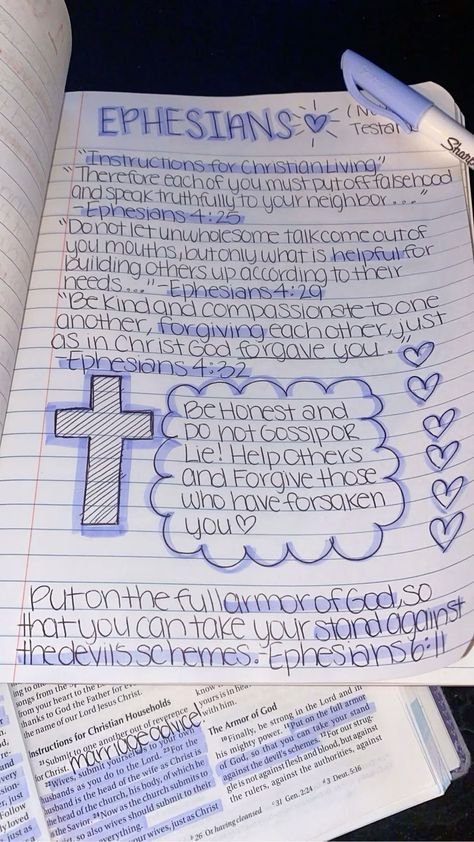 EPHESIANS
"Instructions for Christian Living"
"Therefore each of you must put off falsehood
and speak truthfully to your neighbor...."
-Ephesians 4:25
"Do not let unwholesome talk come out of
you mouths, but only what is helpful for
building others up according to their
needs...."-Ephesians 4:29
"Be Kind and compassionate to one
another, forgiving each other, just
as in Christ God forgave you."
-Ephesians 4:32
Be Honest and
DO not GOSSIP OR
Lie! Help Others
and Forgive those
who have forsaken
you
Put on the full armor of God, so
that you can take your stand against
the devils schemes. Ephesians 6:11
songs from the
from your heart to the
thanks to God the Father for
the name of our Lord Jesus Christ.
Instructions for Christian Households
21 Submit to one another out of reverence
for Christ.
marriage advice!
22 Wives, submit yourselves to your own
husbands as you do to the Lord. 23 For the
husband is the head of the wife as Christ is
the head of the church, his body, of which he
the Savior. 24 Now as the church submits to
so also wives should submit to their
everything.
your wives, just as Christ
The Armor of God
10 Finally, be strong in the Lord and in
his mighty power. 11 Put on the full armor
of God, so that you can take your stand
against the devil's schemes. 12 For our strug-
gle is not against flesh and blood, but against
the rulers, against the authorities, against
b 26 Or having cleansed
c 31 Gen. 2:24
d 3 Deut. 5:16